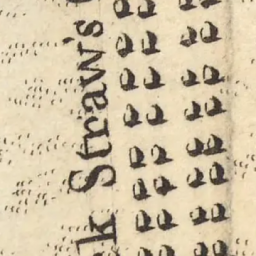 k Straw's